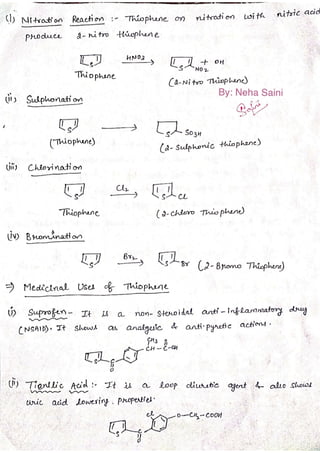 (i) Nitration Reaction :- Thiophene on nitration with nitric acid
produce 2-nitro thiophene
HNO3
S
S NO2 + OH
Thiophene
(2-Nitro Thiophene)
By: Neha Saini
(ii) Sulphonation
S
S SO3H
(Thiophene)
(2-Sulphonic thiophene)
(iii) Chlorination
Cl2
S
S Cl
Thiophene
(2-chloro Thiophene)
(iv) Bromination
Br2
S
S Br (2-Bromo Thiophene)
=) Medicinal Uses of Thiophene
(i) Suprofen - It is a non-steroidal anti-Inflammatory drug
(NSAID). It shows as analgesic & anti-pyretic actions.
CH3 O
CH-C-OH
S C
O
(ii) Tienilic Acid :- It is a loop diuretic agent & also shows
uric acid lowering properties.
Cl O-CH2-COOH
S C
O